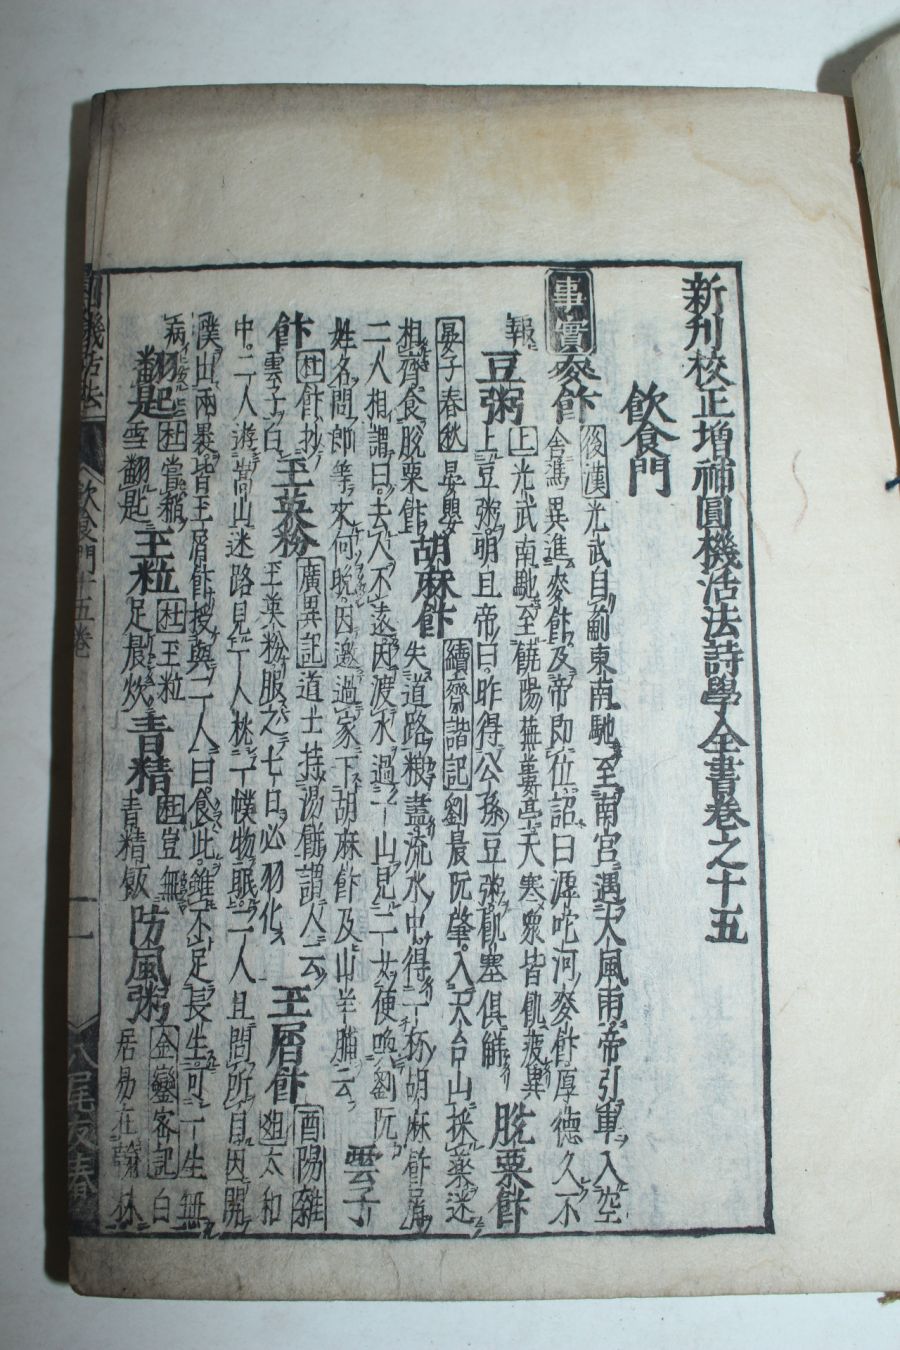 新刋校正増補圓機活法詩學全書巻之十五
飲食門
事實
麥飰
後漢光武自薊東南馳至南宮遇大風雨帝引車入空
舍馮異進麥飰及帝即位詔曰滹沱河麥飰厚德久不
報
豆粥
上光武南馳至饒陽蕪蔞亭天寒衆皆飢疲異
上豆粥明旦帝曰昨得公孫豆粥飢寒俱解
脫粟飰
晏子春秋晏嬰
相齊食脫粟飰
胡麻飰
續齊諧記劉晨阮肇入天台山採藥迷
失道路粮盡流水中得一杯胡麻飰屑
二人相謂曰去人不遠因渡水過一山見二女便喚劉阮
姓名問郎等來何晚因邀過家下胡麻飰及山羊脯云
雲子
飰
杜飰抄
雲子白
王英粉
廣異記道士持湯餅謂人云
王英粉服之七日必羽化
玉屑飰
酉陽雜
俎太和
中二人遊嵩山迷路見一人枕一幞物眠二人且問所自因開
幞出兩暴皆玉屑飰授與二人曰食此雖不足長生可一生無
病
翻匙
杜嘗稻
雪翻匙
玉粒
杜玉粒
足晨炊
青精
杜豈無
青精飯
防風粥
金鑾客記白
居易在翰林
圓機活法
飲食門十五巻
一
八尾友春